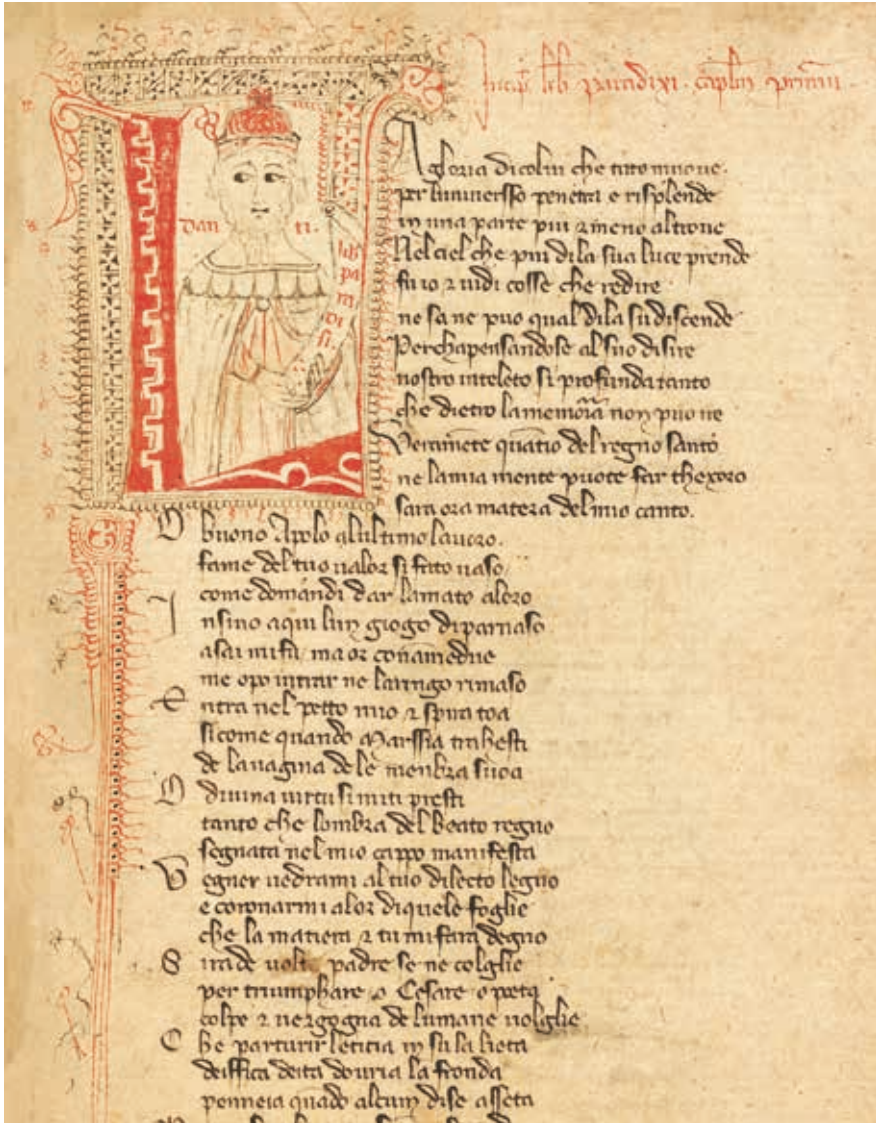 Incip lib paradixi . caplm primum .
Dan ti.
lib
pa
ra
di
si.
A gloria di colui che tuto muoue.
per luniuersso penetra e risplende
in una parte piu 2 meno altroue
Nel ciel che piu dila sua luce prende
fu io 2 uidi cosse che redire
no sa ne puo qual dila su discende
Perchapensandose al suo disire
nostro inteleto si profunda tanto
che dietro la memoria non puo ire
Veramēte quātio del regno santo
ne la mia mente puote far thexoro
sara ora matera del mio canto.
O buono Apolo alultimo lauoro.
fame del tuo ualor si fato uaso
come domandi dar lamato aloro
I nsino aqui lun giogo di parnaso
asai mi fu ma or con amedue
me opo intrar ne laringo rimaso
E ntra nel petto mio 2 spira toa
si come quando Marssia trahesti
de la uagina dele menbra suoa
O diuina uirtu si miti presti
tanto che lombra del beato regno
segnata nel mio cappo manifesta
V egner uedrami al tuo dilecto legno
e coronarmi alor di quele foglie
che la matiera 2 tu mi fara degno
S irade uolte padre se ne colglie
per triumphare o Cesare o poeta
colpe 2 uergogna de lumane uolglie
C he parturir leticia in su la lieta
deiffica deita douria la fronda
penneia quādo alcun dise asseta